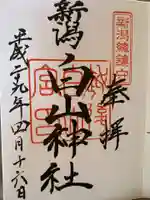 新潟總鎮守
奉拝
新潟
白山神社
平成二十九年四月十六日